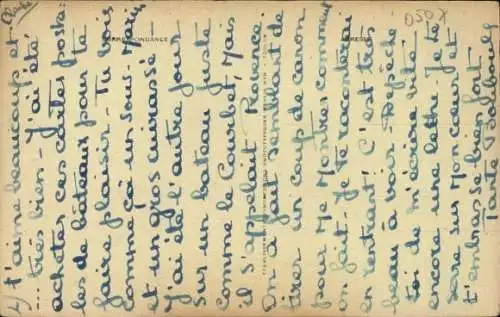 2) t'aime beaucoup et
... très bien - J'ai été
acheter ces cartes posta-
les de bâteaux pour te
faire plaisir - Tu vois
comme ça un sous-Marin
et un gros cuirassé
J'ai été l'autre jour
sur un bateau juste
comme le Courbet, Mais
il s'appelait Provence.
On a fait semblent de
tirer un coup de canon
pour Me Montrer comment
on fait - Je te raconterai
en rentrant! C'est très
beau à voir. Dépêche
toi de m'écrire vite
encore une lettre. Je te
serre sur Mon coeur et
t'embrasse bien fort
CORRESPONDANCE
D50X